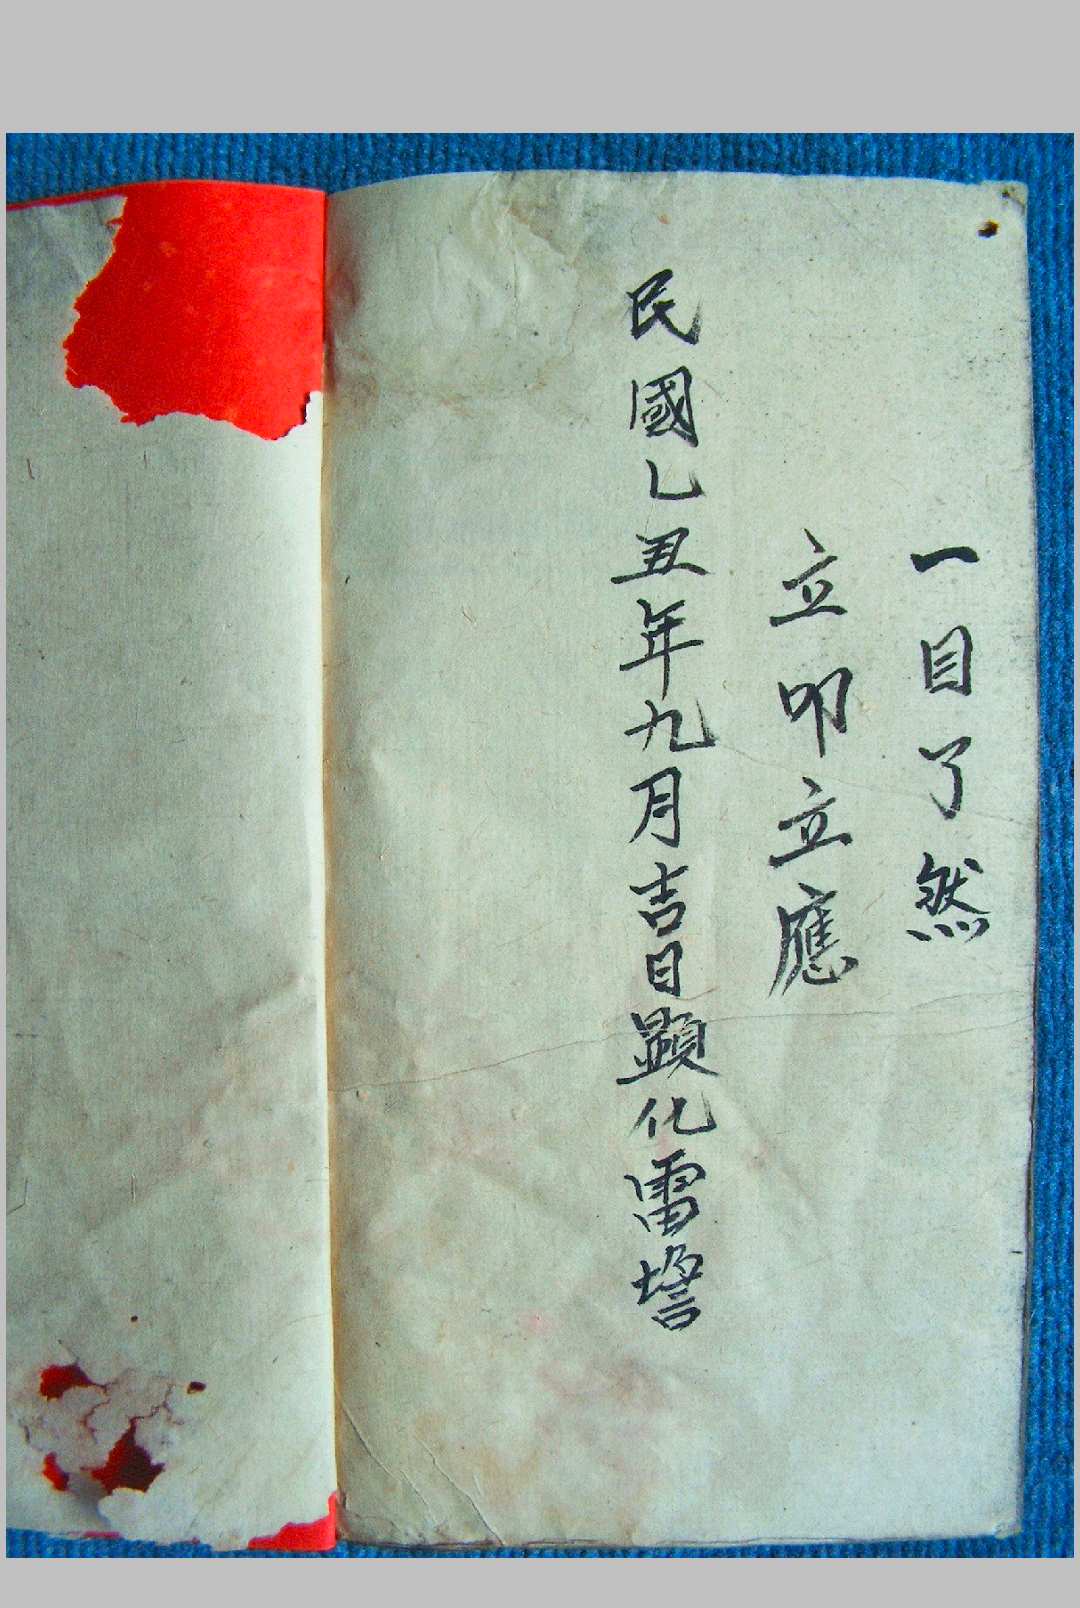 一目了然
立叩立應
民國乙丑年九月吉日顯化雷